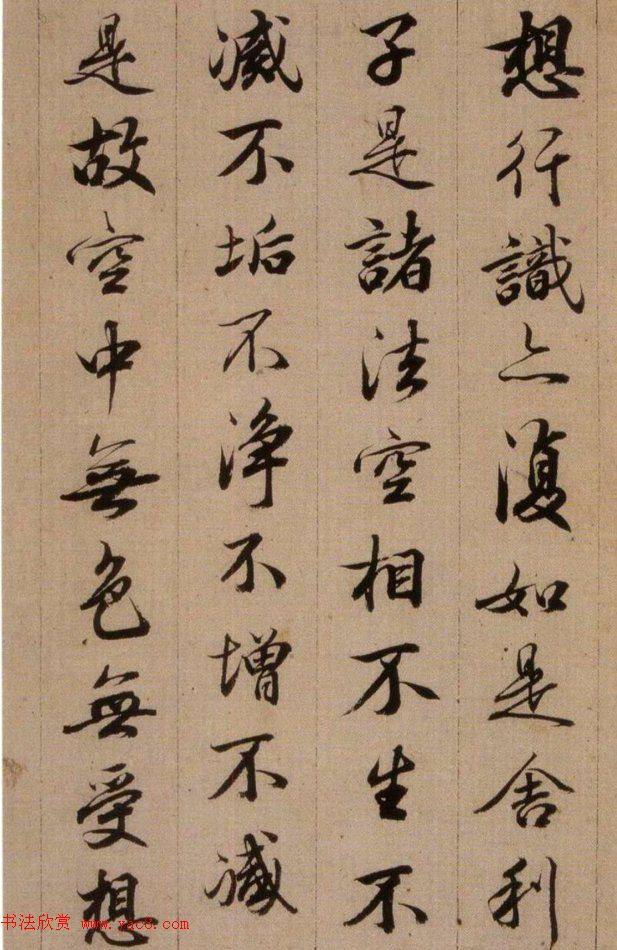 想行識亦復如是舍利
子是諸法空相不生不
滅不垢不淨不增不減
是故空中無色無受想
书法欣赏 www.yac8.com